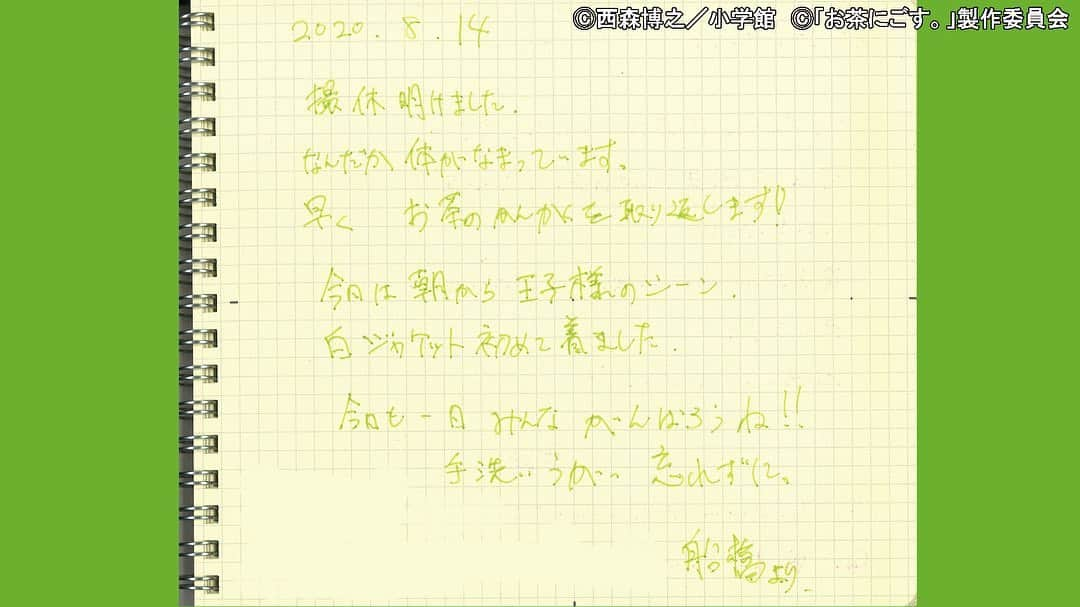 ©西森博之/小学館 ©「お茶にごす。」製作委員会
2020.8.14
撮休明けました.
なんだか 体がなまっています。
早く お茶のかんかくを取り返します!
今日は朝から王子様のシーン.
白ジャケット初めて着ました.
今日も一日 みんな がんばろうね!!
手洗いうがい 忘れずに。
船橋より.